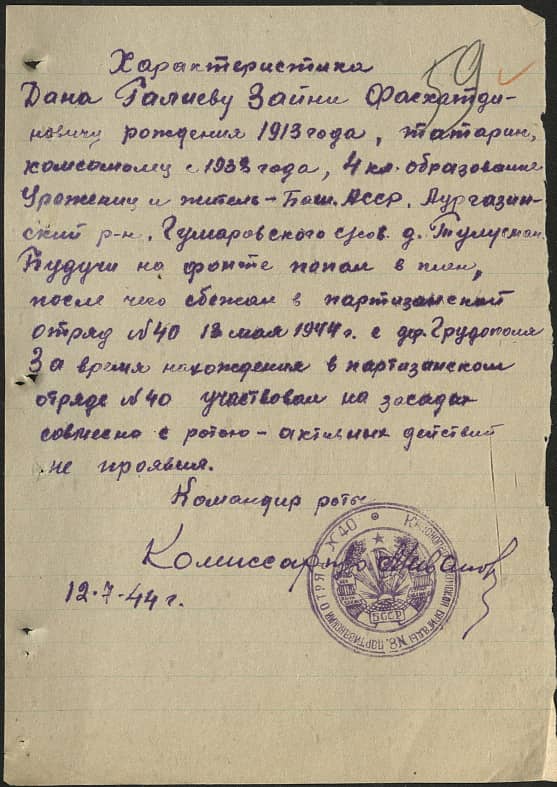 59
Характеристика
Дана Галиеву Зайни Фасхетди-
новичу рождения 1913 года, татарин,
комсомолец с 1933 года, 4 кл. образование
Уроженец и житель - Баш. АССР. Аургазин-
ский р-н. Гумаровского с/сов. д. Тулусман
Будучи на фронте попал в плен,
после чего сбежал в партизанский
отряд №40 12 мая 1944 г. с д. Грудополя
За время нахождения в партизанском
отряде №40 участвовал на засадах
совмесно с ротою - активных действий
не проявил.
Командир роты
Комиссар
12.7.44 г.
ПАРТИЗАНСКИЙ ОТРЯД № 40
БРИГАДЫ №8
БССР